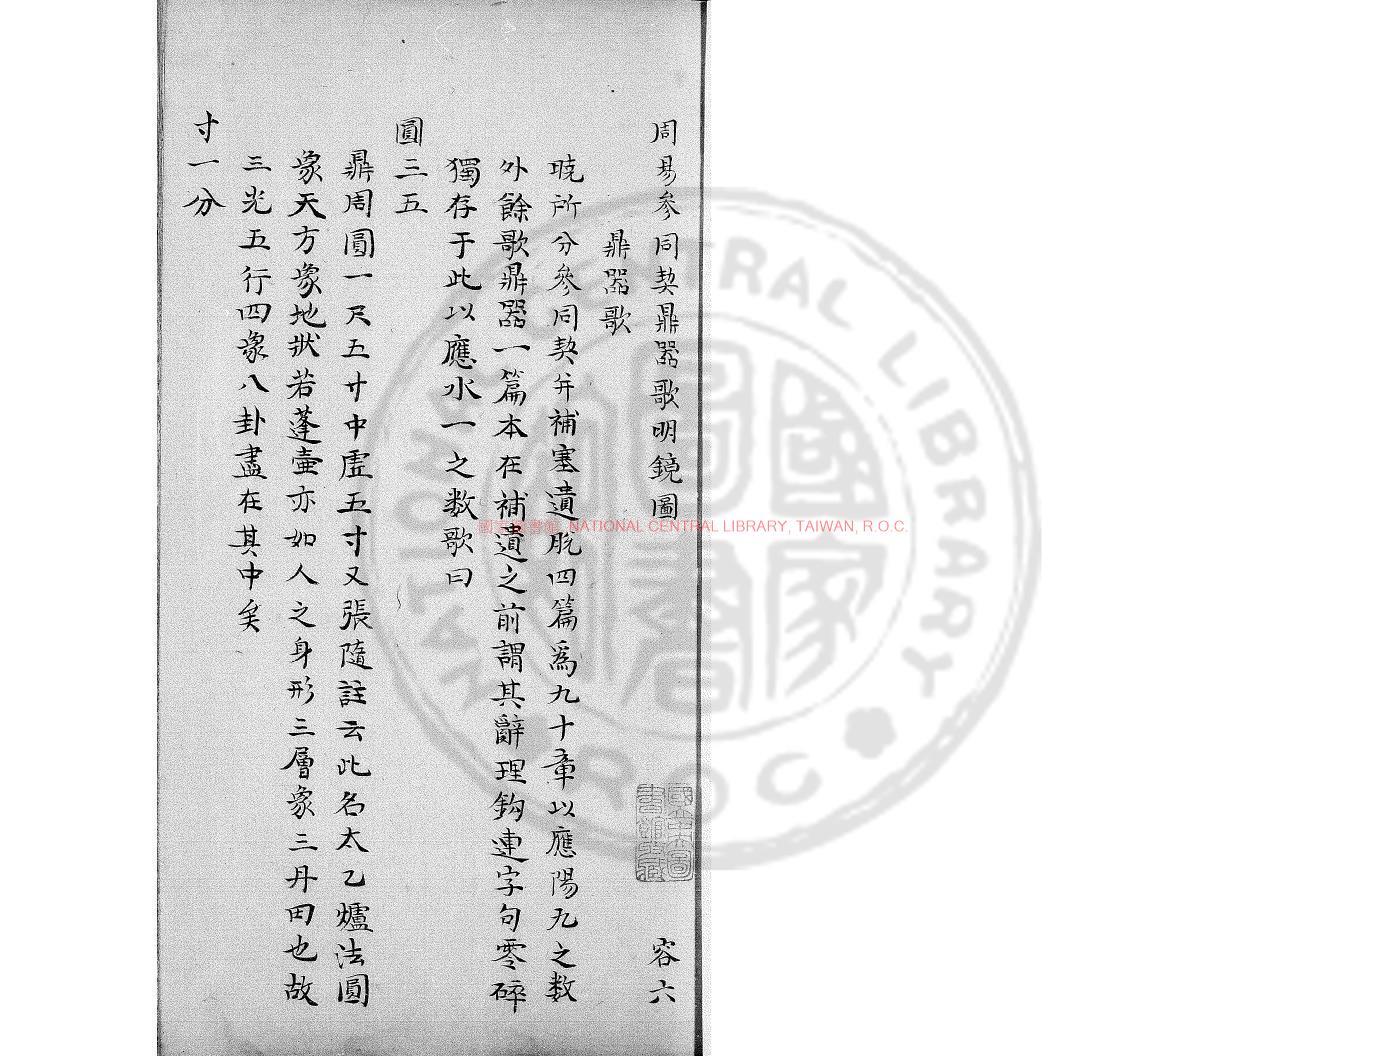 周易參同契鼎器歌明鏡圖 容六
鼎器歌
曉所分參同契并補塞遺脫四篇爲九十章以應陽九之數
外餘歌鼎器一篇本在補遺之前謂其辭理鈎連字句零碎
獨存于此以應水一之数歌曰
圓三五
鼎周圓一尺五寸中虛五寸又張隨註云此名太乙爐法圓
象天方象地狀若蓬壷亦如人之身形三層象三丹田也故
三光五行四象八卦盡在其中矣
寸一分
國家圖書館, NATIONAL CENTRAL LIBRARY, TAIWAN, R.O.C.
NATIONAL CENTRAL LIBRARY
R.O.C
國家圖書